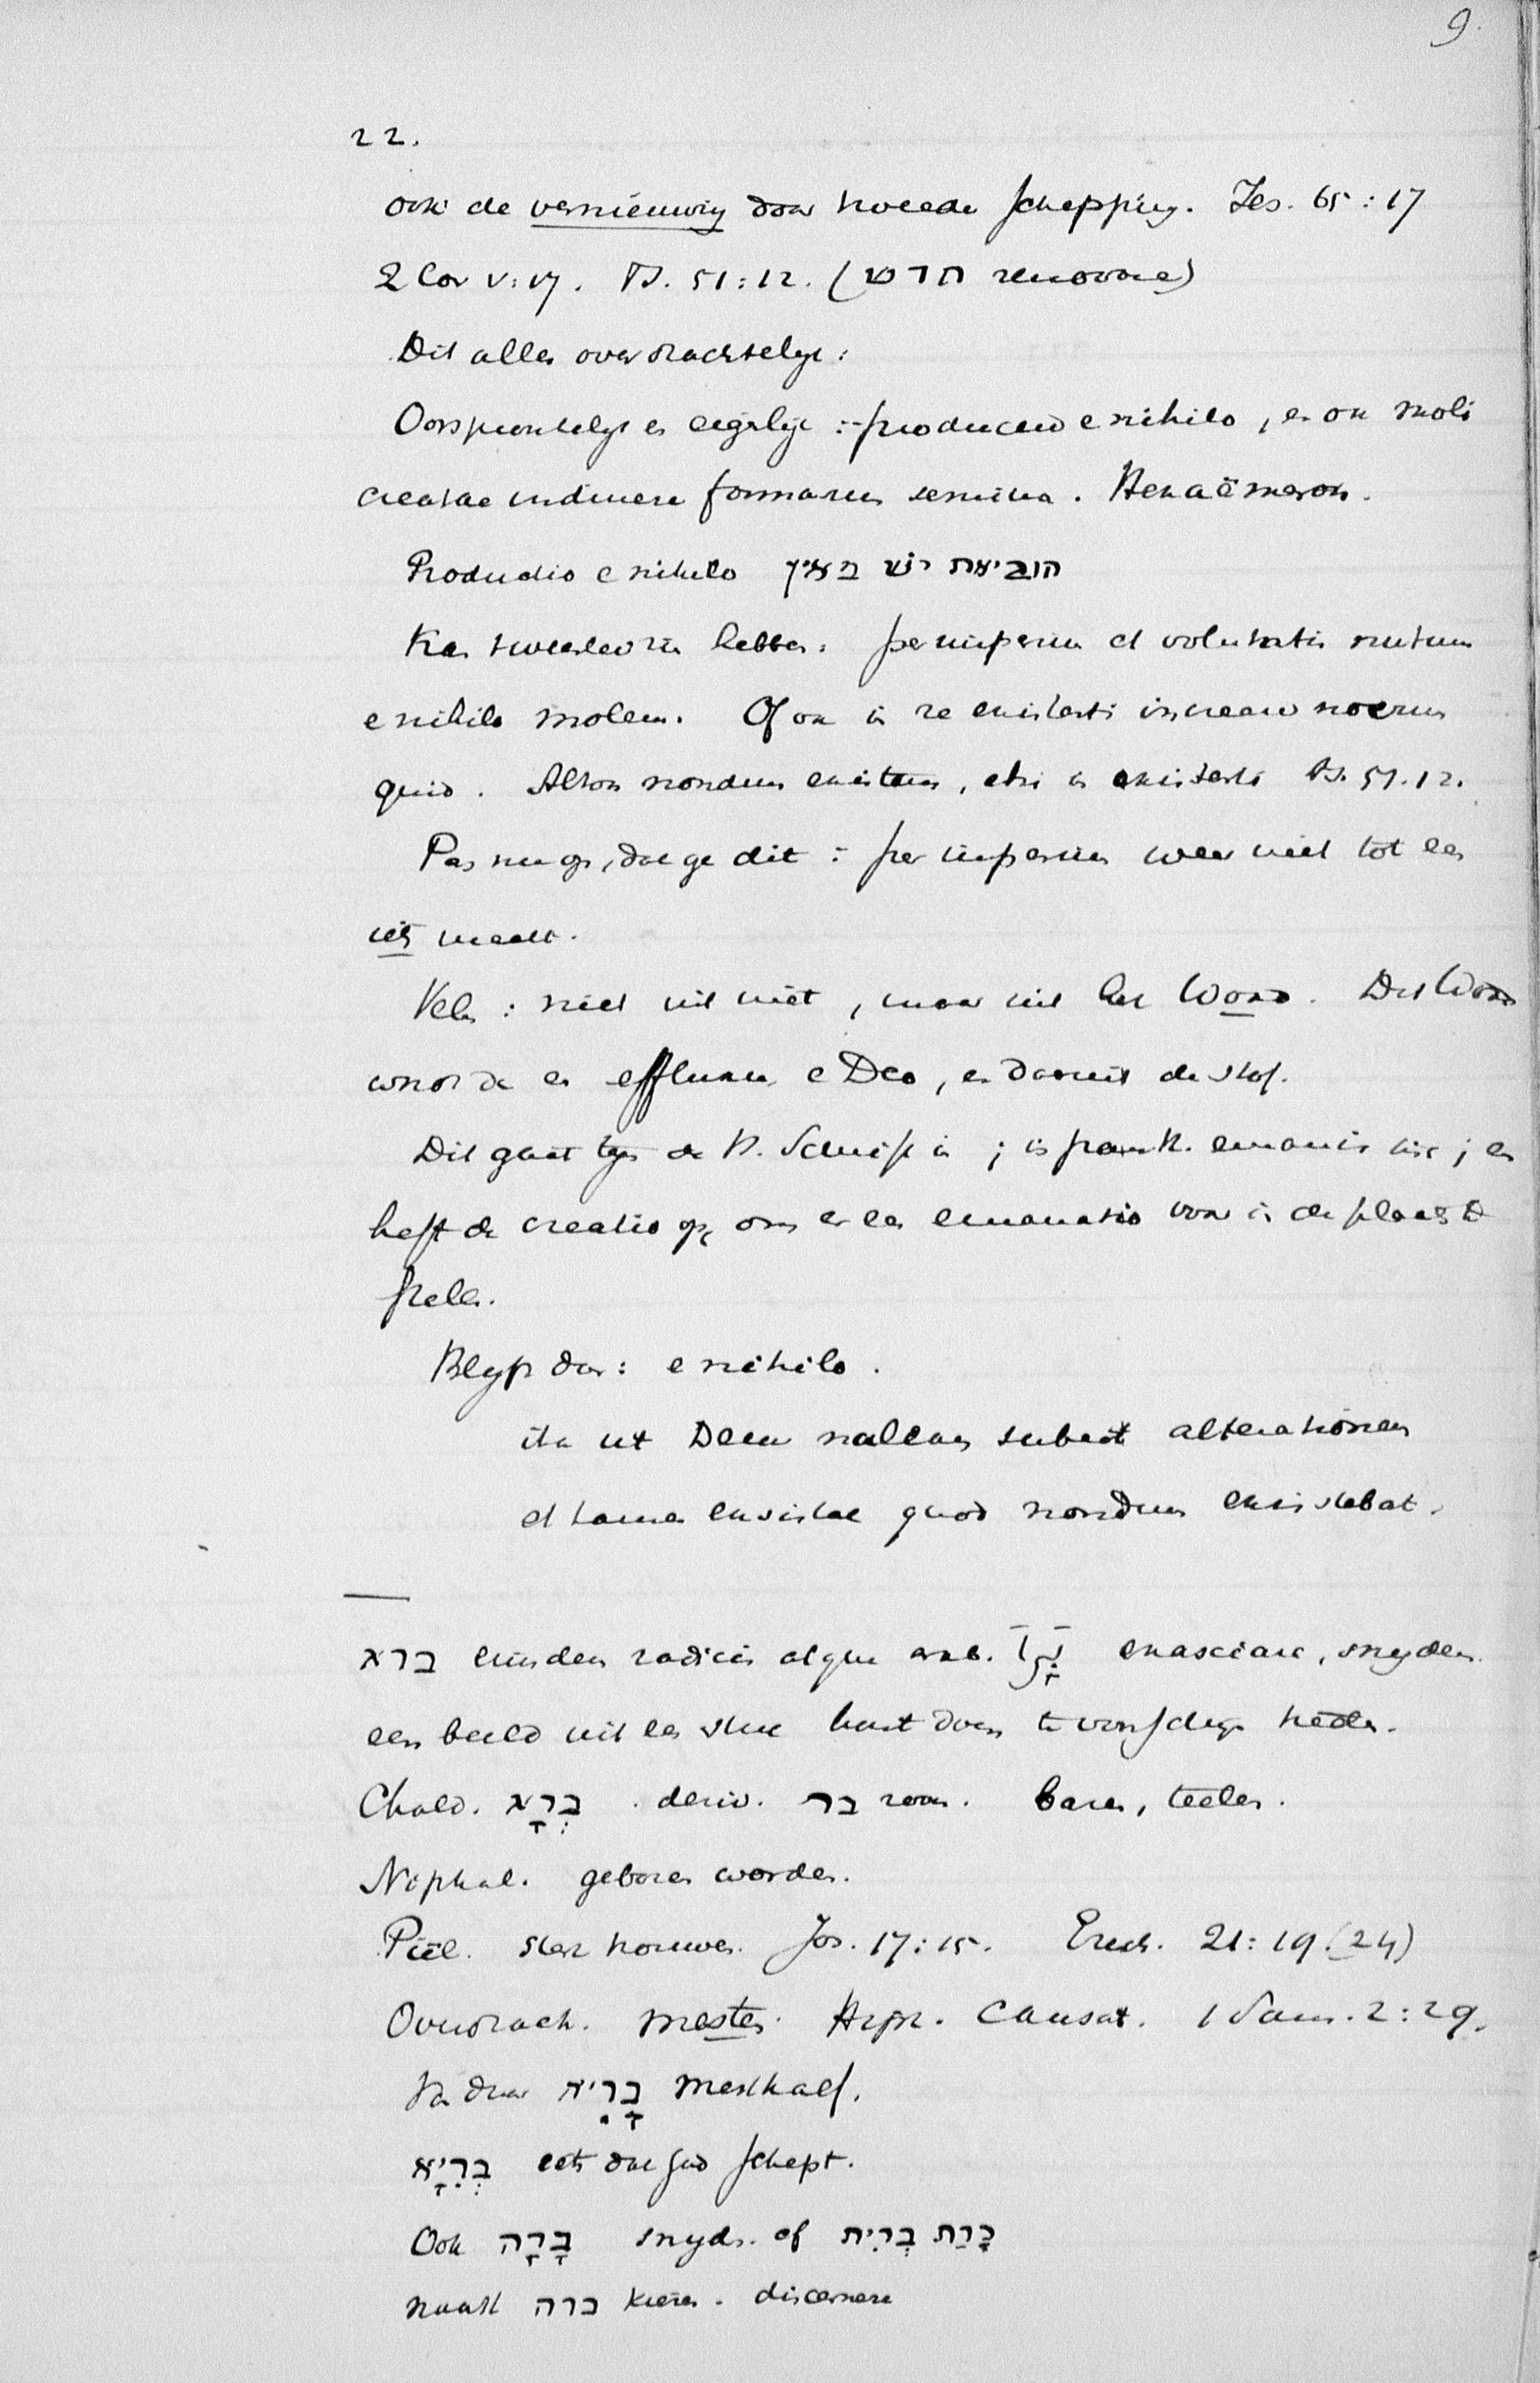 9.
22.
ook de vernieuwing door tweede schepping. Jes. 65:17
2 Cor V:17. Ps. 51:12. (חדש renovare)
Dit alles overdrachtelijk:
Oorspronkelijk en eigenlijk: producere e nihilo, en ook moli
creatae inducere formarum semina. Hexaëmeron.
Productio e nihilo הוביאת יש מאין
Kan tweeërlei zin hebben: per imperium et voluntatis nutum
e nihilo molem. Of ook in re existenti increare novum
quid. Altoos nondum existens, etsi in existenti Ps. 51.12.
Pas nu op, dat ge dit: per imperium weer niet tot een
iets maakt.
Velen: niet uit niet, maar uit het Woord. Dit Woord
wordt dan een effluxus e Deo, en daaruit de stof.
Dit gaat tegen de H. Schrift in; is panth. emanatistisch; en
heft de creatio op, om er een emanatio voor in de plaats te
stellen.
Blijf dus: e nihilo.
ita ut Deus nullam subeat alterationem
et tamen existat quod nondum existebat.
ברא eiusdem radicis atque arab. برأ exasciare, snyden
een beeld uit een stuk hout doen te voorschijn treden.
Chald. בְּרָא. deriv. בר zoon. baren, teelen.
Niphal. geboren worden.
Piël. sterk houwen. Jos. 17:15. Ezech. 21:19.(24)
Overdrach. mesten. Hiph. Causat. 1 Sam. 2:29.
Van daar בָּרִיא mestkalf.
בְּרִיָא iets dat God schept.
Ook בָּרָה snyden. of כָּרַת בְּרִית
naast ברה kiezen. discernere